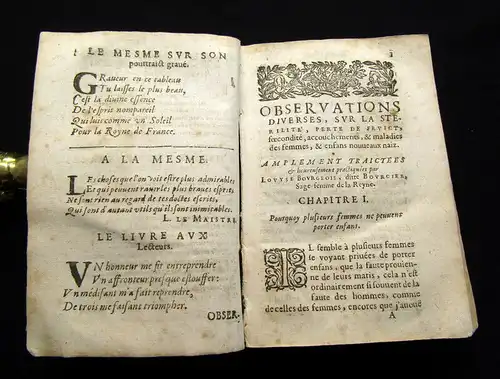 LE MESME SVR SON
pourtraict graué.
GRaueur en ce tableau
Tu laisses le plus beau,
C'est la diuine essence
De l'esprit nompareil
Qui luit comme vn Soleil
Pour la Royne de France.
A LA MESME.
LEs choses que l'on voit estre plus admirables
Et qui peuuent rauir les plus braues esprits,
Ne sont rien au regard de tes doctes escrits,
Qui sont d'autant vtils qu'ils sont inimitables.
L. LE MAISTRE.
LE LIVRE AVX
Lecteurs.
VN honneur me fit entreprendre
Vn affronteur presque estouffer:
Vn médisant m'a fait reprendre,
De trois me faisant triompher.
OBSER-
1
OBSERVATIONS
DIVERSES, SVR LA STE-
RILITE', PERTE DE FRVICT,
fœcondité, accouchements, & maladies
des femmes, & enfans nouueaux naiz.
AMPLEMENT TRAICTEES
& heureusement practiquées par
LOVYSE BOVRGEOIS, ditte BOVRCIER,
Sage-femme de la Reyne.
CHAPITRE I.
Pourquoy plusieurs femmes ne peuuent
porter enfans.
IL semble à plusieurs femmes
se voyant priuées de porter
enfans, que la faute prouien-
ne de leurs maris, cela n'est
ordinairement si souuent de la
faute des hommes, comme
de celles des femmes, encores que i'auoüe
A